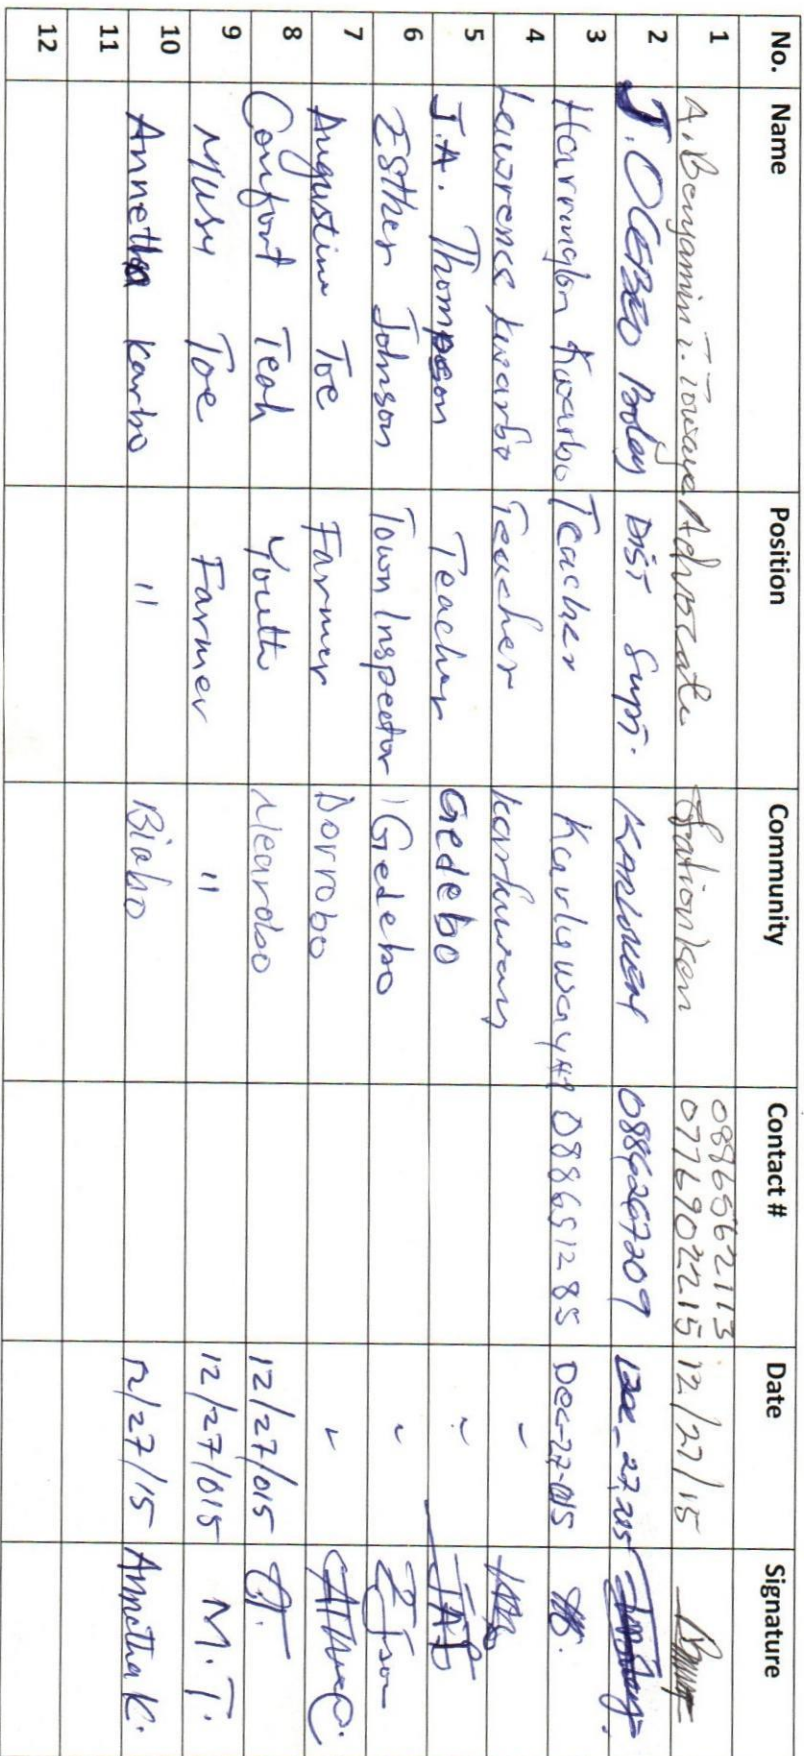 No. Name Position Community Contact # Date Signature
1 A. Benjamin T. Toway Advocate 0886562113 0776902215 12/27/15
2 J. Dist Supt. 0886267209 Dec_27,
3 Harrington Kwarbo Teacher 088651285 Dec-27-015
4 Lawrence Kwarbo Teacher "
5 J.A. Thompson Teacher Gedebo " JAT
6 Esther Johnson Town Inspector Gedebo "
7 Augustine Toe Farmer Dorrobo "
8 Comfort Teah Youth Nearobo 12/27/015 C.T.
9 Mary Toe Farmer " 12/27/015 M.T.
10 Annetha Karbo " Biabo 12/27/15 Annetha K.
11
12